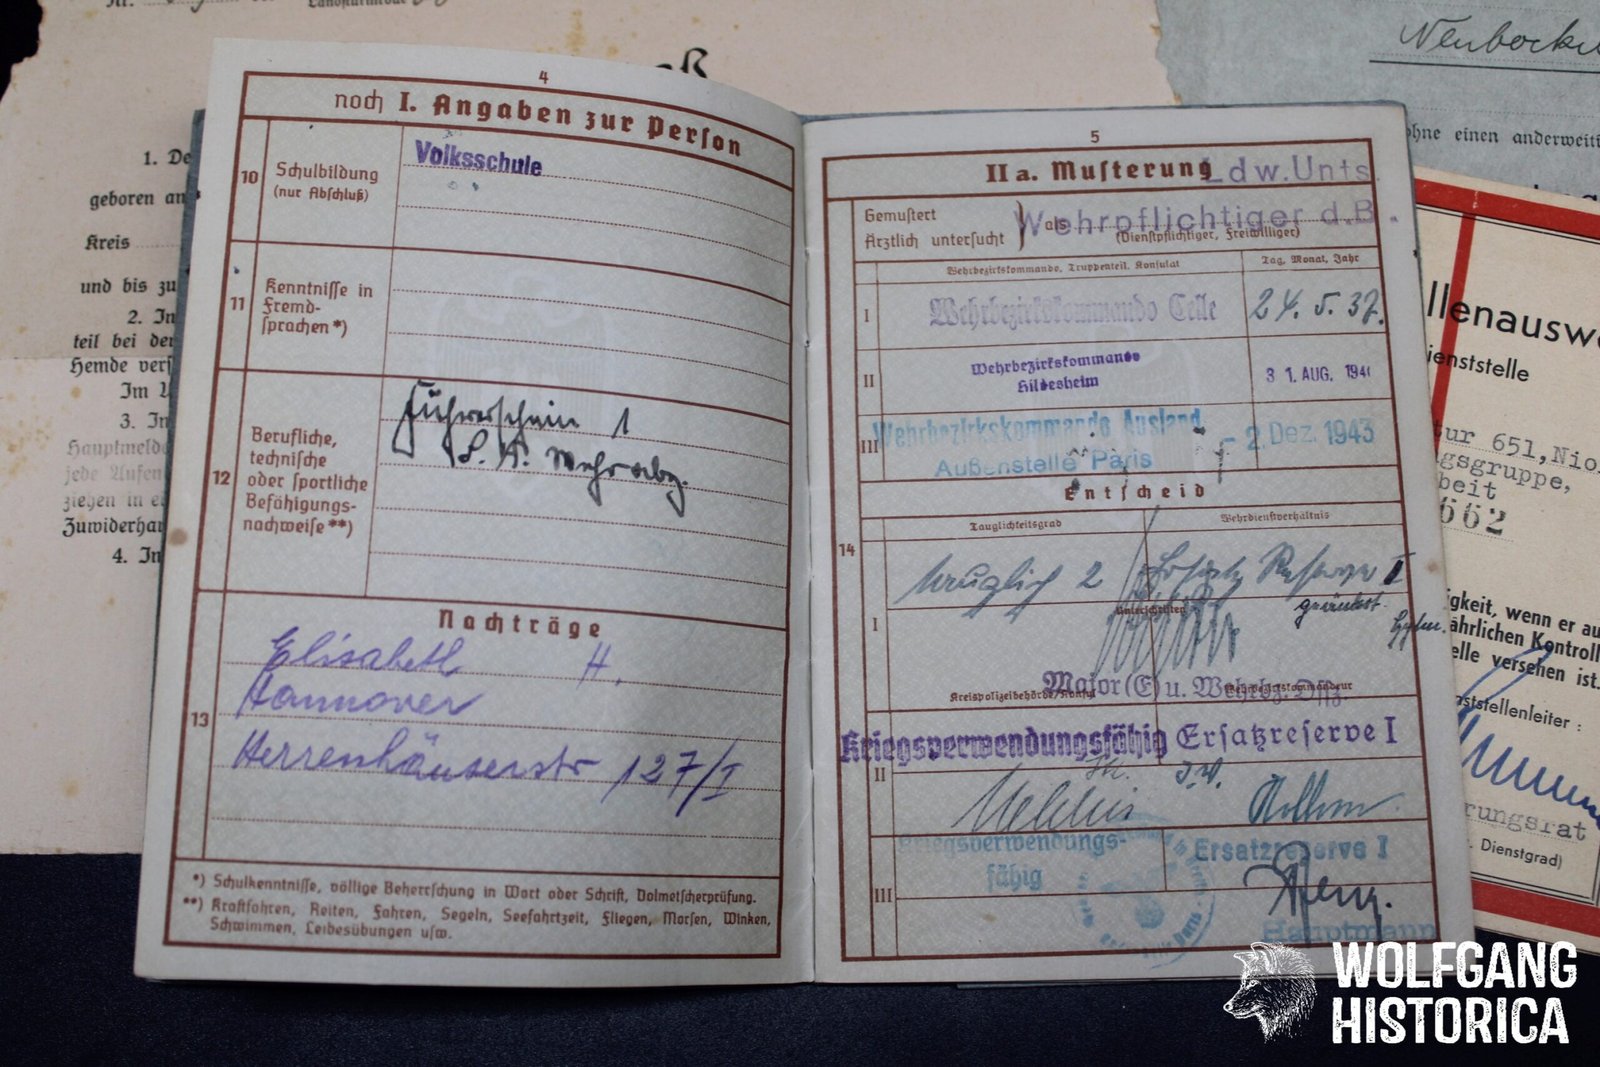 Landsturmrolle
1. De
geboren am
Kreis
und bis zu
2. In
teil bei der
Hemde vers
Im
3. In
Hauptmelde
jede Aufen
ziehen in e
Zuwiderhan
4. In
4
noch I. Angaben zur Person
10
Schulbildung
(nur Abschluß)
Volksschule
11
Kenntnisse in
Fremd-
sprachen*)
12
Berufliche,
technische
oder sportliche
Befähigungs-
nachweise**)
Führerschein 1
S.A. Wehrabz.
Nachträge
13
Elisabeth H.
Hannover
Herrenhäuserstr 127/I
*) Schulkenntnisse, völlige Beherrschung in Wort oder Schrift, Dolmetscherprüfung.
**) Kraftfahren, Reiten, Fahren, Segeln, Seefahrtzeit, Fliegen, Morsen, Winken,
Schwimmen, Leibesübungen usw.
5
II a. Musterung
Ldw.Unts.
Gemustert
Ärztlich untersucht
} als
Wehrpflichtiger d.B.
(Dienstpflichtiger, Freiwilliger)
Wehrbezirkskommando, Truppenteil, Konsulat
Tag, Monat, Jahr
I
Wehrbezirkskommando Celle
24. 5. 37.
II
Wehrbezirkskommando
Hildesheim
31. AUG. 194
III
Wehrbezirkskommando Ausland
Außenstelle Paris
- 2. Dez. 1943
Entscheid
14
Tauglichkeitsgrad
Wehrdienstverhältnis
I
tauglich 2
Ersatz Reserve I
geändert
Unterschriften
Major (E) u. Wehrbz. Offz.
Kreispolizeibehörde/Konsul
Wehrbezirkskommandeur
II
Kriegsverwendungsfähig
Ersatzreserve I
J.V.
III
Kriegsverwendungs-
fähig
Ersatzreserve I
Hauptmann
ohne einen anderweiti
llenauswe
ienststelle
tur 651, Nio
gsgruppe,
beit
662
igkeit, wenn er au
ährlichen Kontroll
elle versehen ist.
ststellenleiter :
rungsrat
Dienstgrad)
WOLFGANG
HISTORICA